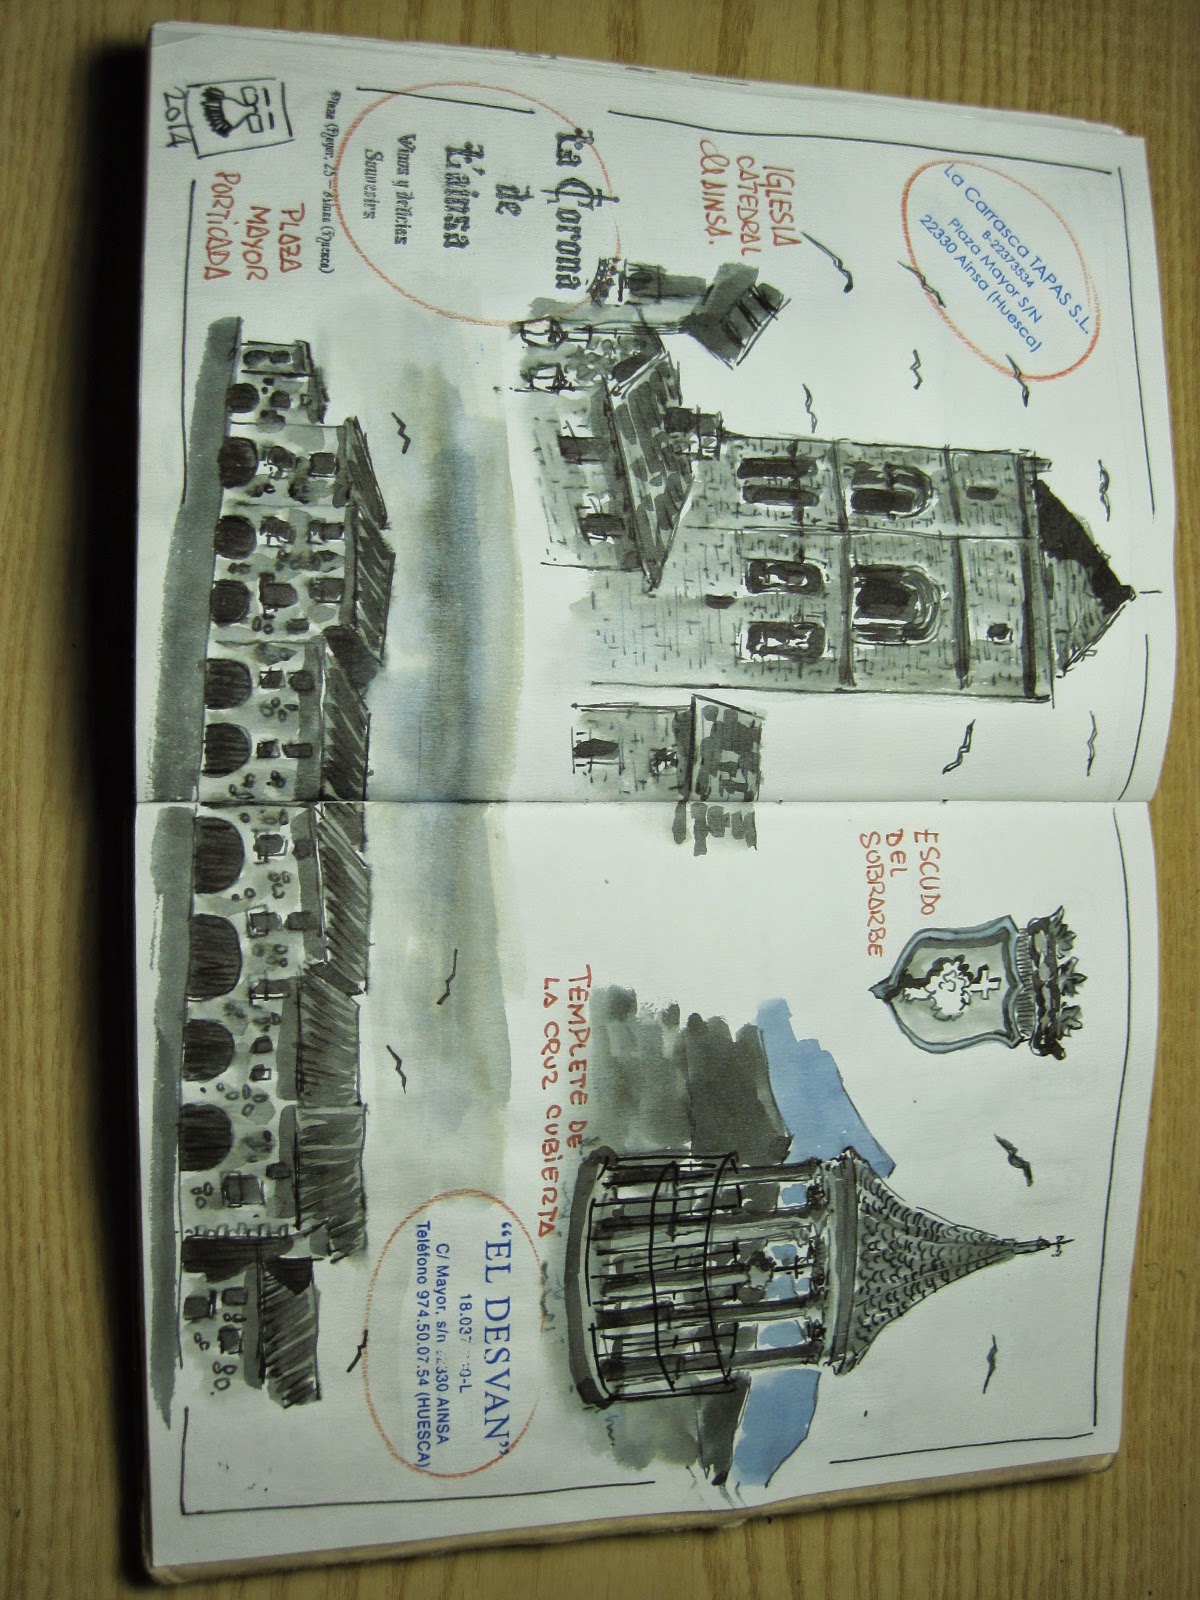 La Carrasca TAPAS S.L.
B-22373534
Plaza Mayor S/N
22330 Ainsa (Huesca)
IGLESIA
CATEDRAL
de AINSA.
La Corona
de
L'ainsa
Vinos y delicias
Souvenirs
Plaza Mayor, 25 - Ainsa (Huesca)
PLAZA
MAYOR
PORTICADA
2014
ESCUDO
DEL
SOBRARBE
TEMPLETE DE
LA CRUZ CUBIERTA
"EL DESVAN"
C/ Mayor, s/n 22330 AINSA
Teléfono 974.50.07.54 (HUESCA)